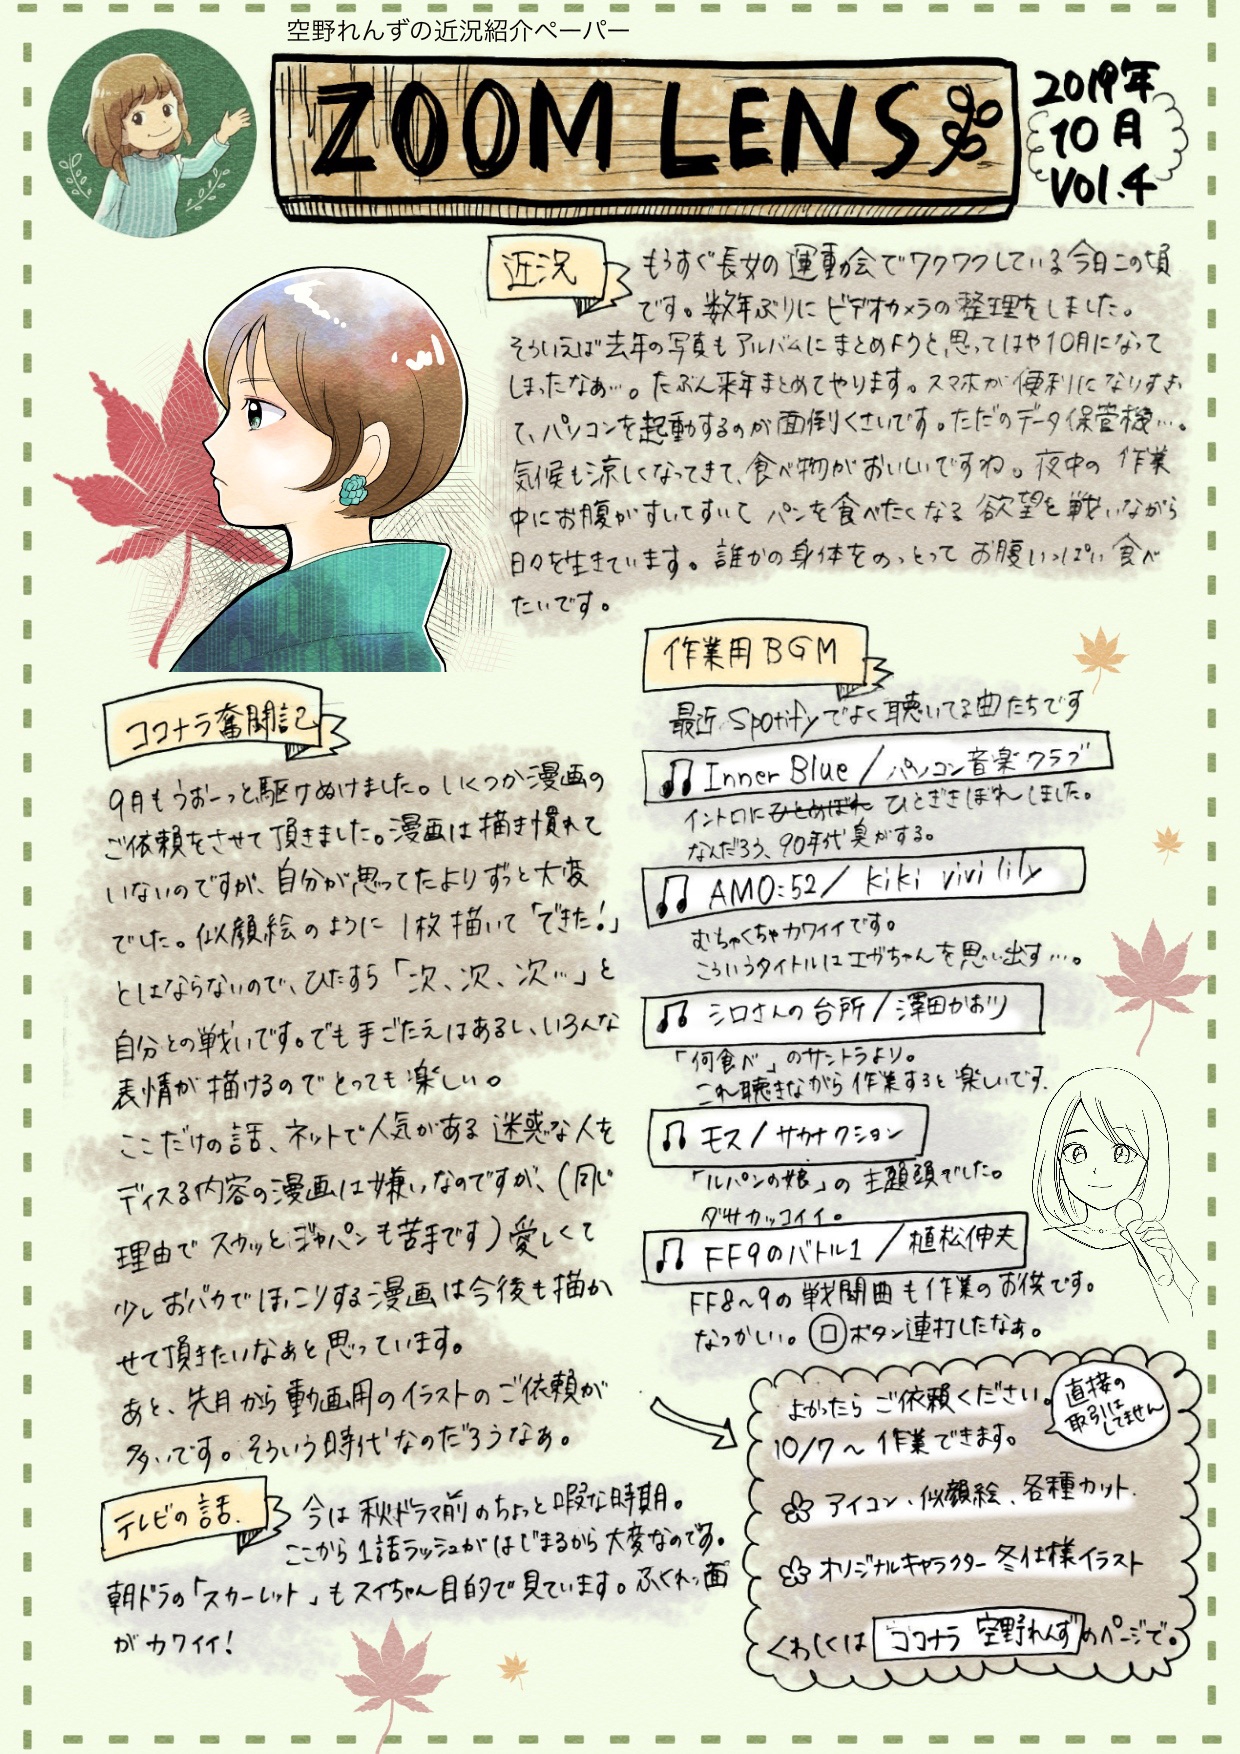 空野れんずの近況紹介ペーパー
ZOOM LENS
2019年
10月
Vol.4
近況
もうすぐ長女の運動会でワクワクしている今日この頃
です。数年ぶりにビデオカメラの整理をしました。
そういえば去年の写真もアルバムにまとめようと思ってはや10月になって
しまったなぁ…。たぶん来年まとめてやります。スマホが便利になりすぎ
て、パソコンを起動するのが面倒くさいです。ただのデータ保管機…。
気候も涼しくなってきて、食べ物がおいしいですね。夜中の作業
中にお腹がすいてすいてパンを食べたくなる欲望と戦いながら
日々を生きています。誰かの身体をのっとってお腹いっぱい食べ
たいです。
ココナラ奮闘記
9月もうおーっと駆けぬけました。いくつか漫画の
ご依頼をさせて頂きました。漫画は描き慣れて
いないのですが、自分が思ってたよりずっと大変
でした。似顔絵のように1枚描いて「できた!」
とはならないので、ひたすら「次、次、次…」と
自分との戦いです。でも手ごたえはあるし、いろんな
表情が描けるのでとっても楽しい。
ここだけの話、ネットで人気がある迷惑な人を
ディスる内容の漫画は嫌いなのですが、(同じ
理由でスカッとジャパンも苦手です)愛しくて
少しおバカでほっこりする漫画は今後も描か
せて頂きたいなぁと思っています。
あと、先月から動画用のイラストのご依頼が
多いです。そういう時代なのだろうなぁ。
テレビの話.
今は秋ドラマ前のちょっと暇な時期。
ここから1話ラッシュがはじまるから大変なのです。
朝ドラの「スカーレット」もスイちゃん目的で見ています。ふくれっ面
がカワイイ!
作業用BGM
最近Spotifyでよく聴いてる曲たちです
Inner Blue/パソコン音楽クラブ
イントロにひとめぼれ ひとぎきぼれしました。
なんだろう、90年代臭がする。
AM0:52/kiki vivi lily
むちゃくちゃカワイイです。
こういうタイトルはエガちゃんを思い出す…。
シロさんの台所/澤田かおり
「何食べ」のサントラより。
これ聴きながら作業すると楽しいです.
モス/サカナクション
「ルパンの娘」の主題頭でした。
ダサカッコイイ。
FF9のバトル1/植松伸夫
FF8~9の戦闘曲も作業のお供です。
なつかしい。□ボタン連打したなぁ。
よかったらご依頼ください。
直接の
取引は
してません
10/7~作業できます。
アイコン、似顔絵、各種カット.
オリジナルキャラクター冬仕様イラスト
くわしくはココナラ 空野れんずのページで。